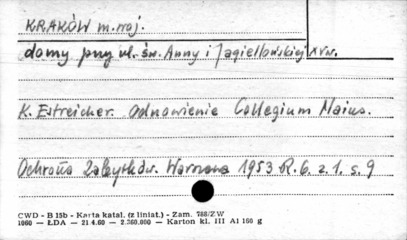 KRAKÓW m. woj.
domy przy ul. św. Anny i Jagiellońskiej XV w.
K. Estreicher. Odnowienie Collegium Maius.
Ochrona Zabytków. Warszawa 1953 R. 6. z. 1. s. 9
CWD - B 15b - Karta katal. (z liniat.) - Zam. 788/ZW
1060 — ŁDA — 21.4.60 — 2.360.000 — Karton kl. III A1 160 g